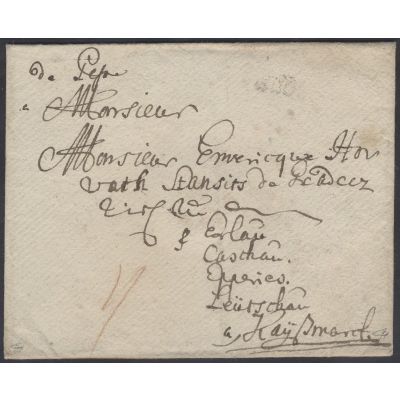 de Pest
a Monsieur
Monsieur Emericque Hor
vath Stansits de
p Erlau
Caschau.
Epperies.
Leütschau
a Kayßmarck.